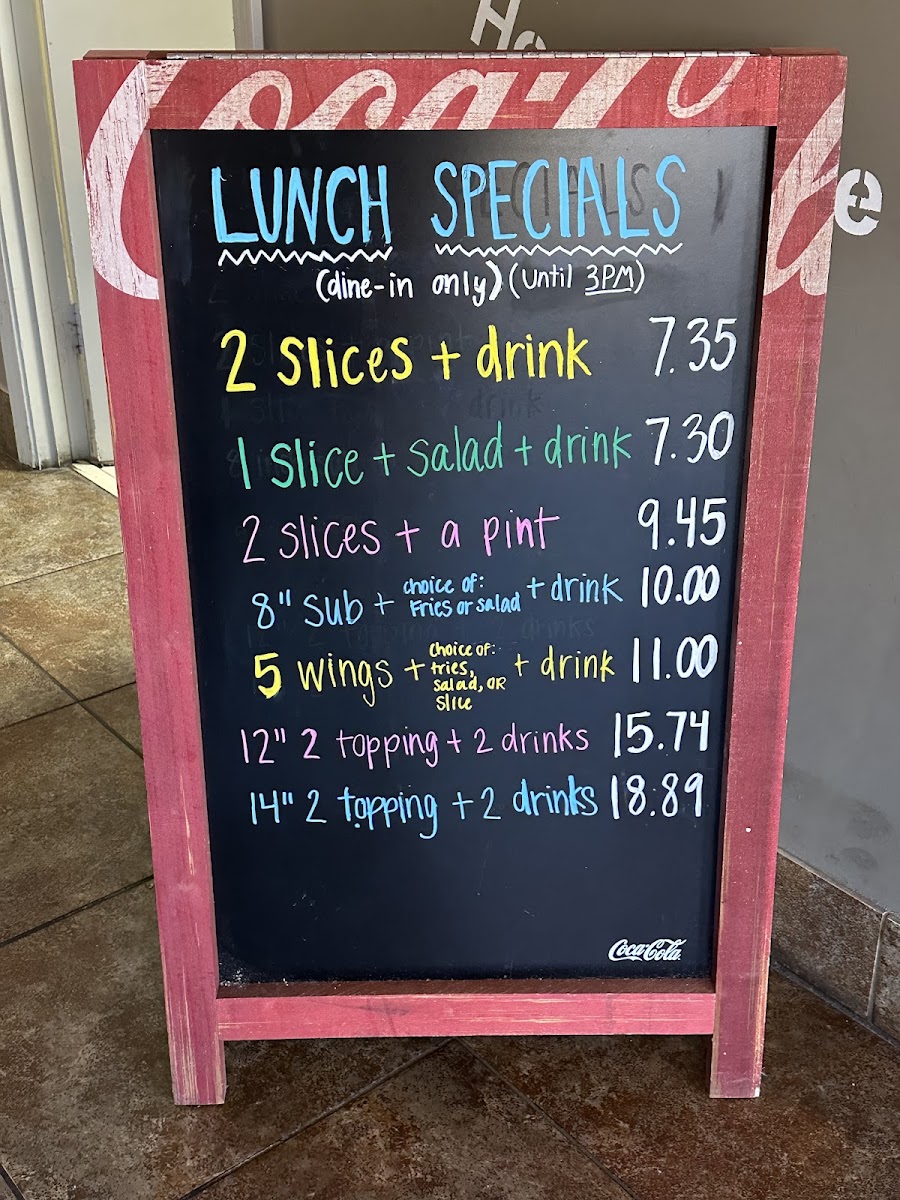 Ho
e
Coca-Cola
LUNCH SPECIALS
(dine-in only) (Until 3PM)
2 slices + drink 7.35
1 slice + salad + drink 7.30
2 slices + a pint 9.45
8" sub + choice of: Fries or salad + drink 10.00
5 wings + choice of: fries, salad, OR slice + drink 11.00
12" 2 topping + 2 drinks 15.74
14" 2 topping + 2 drinks 18.89
Coca-Cola